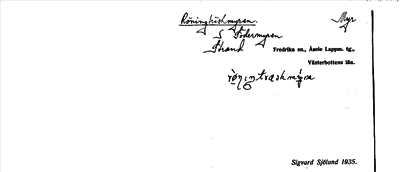 Röningträskmyran. Myr
S Södermyran
Strand Fredrika sn., Åsele Lappm. tg.,
Västerbottens län.
Sigvard Sjölund 1935.